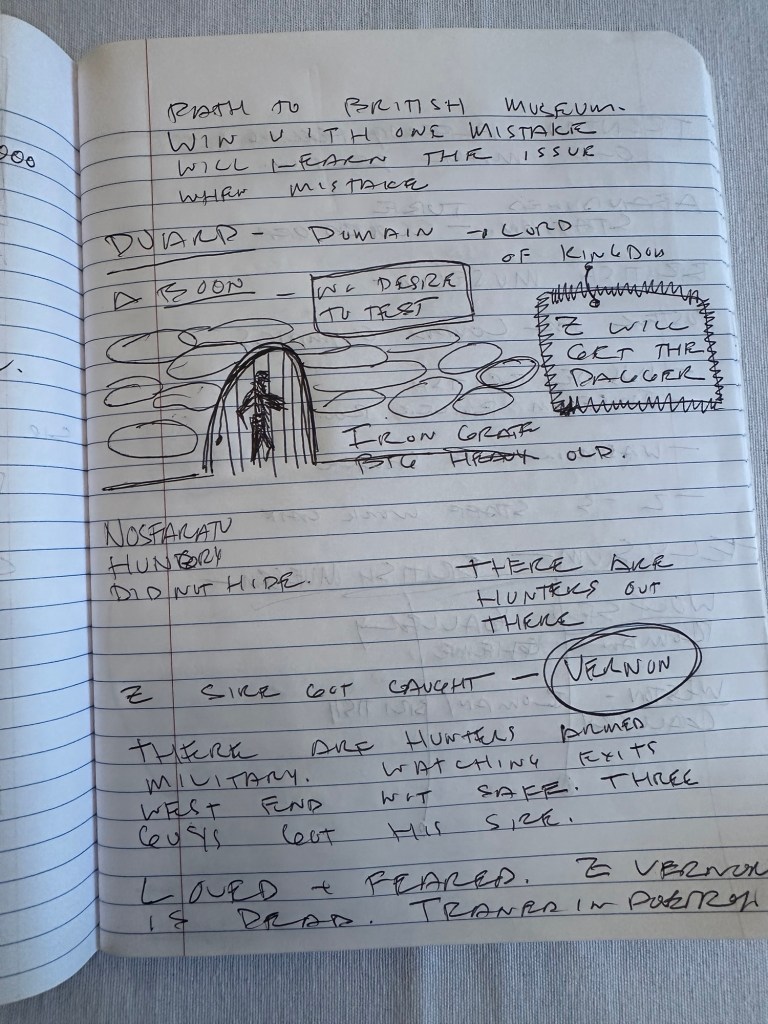 PATH TO BRITISH MUSEUM.
WIN WITH ONE MISTAKE
WILL LEARN THE ISSUE
WHEN MISTAKE
DVARD - DOMAIN → LORD
OF KINGDOM
A BOON - NO DESIRE
TO TEST
Z WILL
GET THE
DAGGER
IRON GRATE
BIG HEAVY OLD.
NOSFARATU
HUNGRY
DID NOT HIDE.
THERE ARE
HUNTERS OUT
THERE
Z SIRE GOT CAUGHT - VERNON
THERE ARE HUNTERS ARMED
MILITARY. WATCHING EXITS
WEST END NOT SAFE. THREE
GUYS GOT HIS SIRE.
LOVED + FEARED. Z VERNON
IS DEAD. TRANED IN